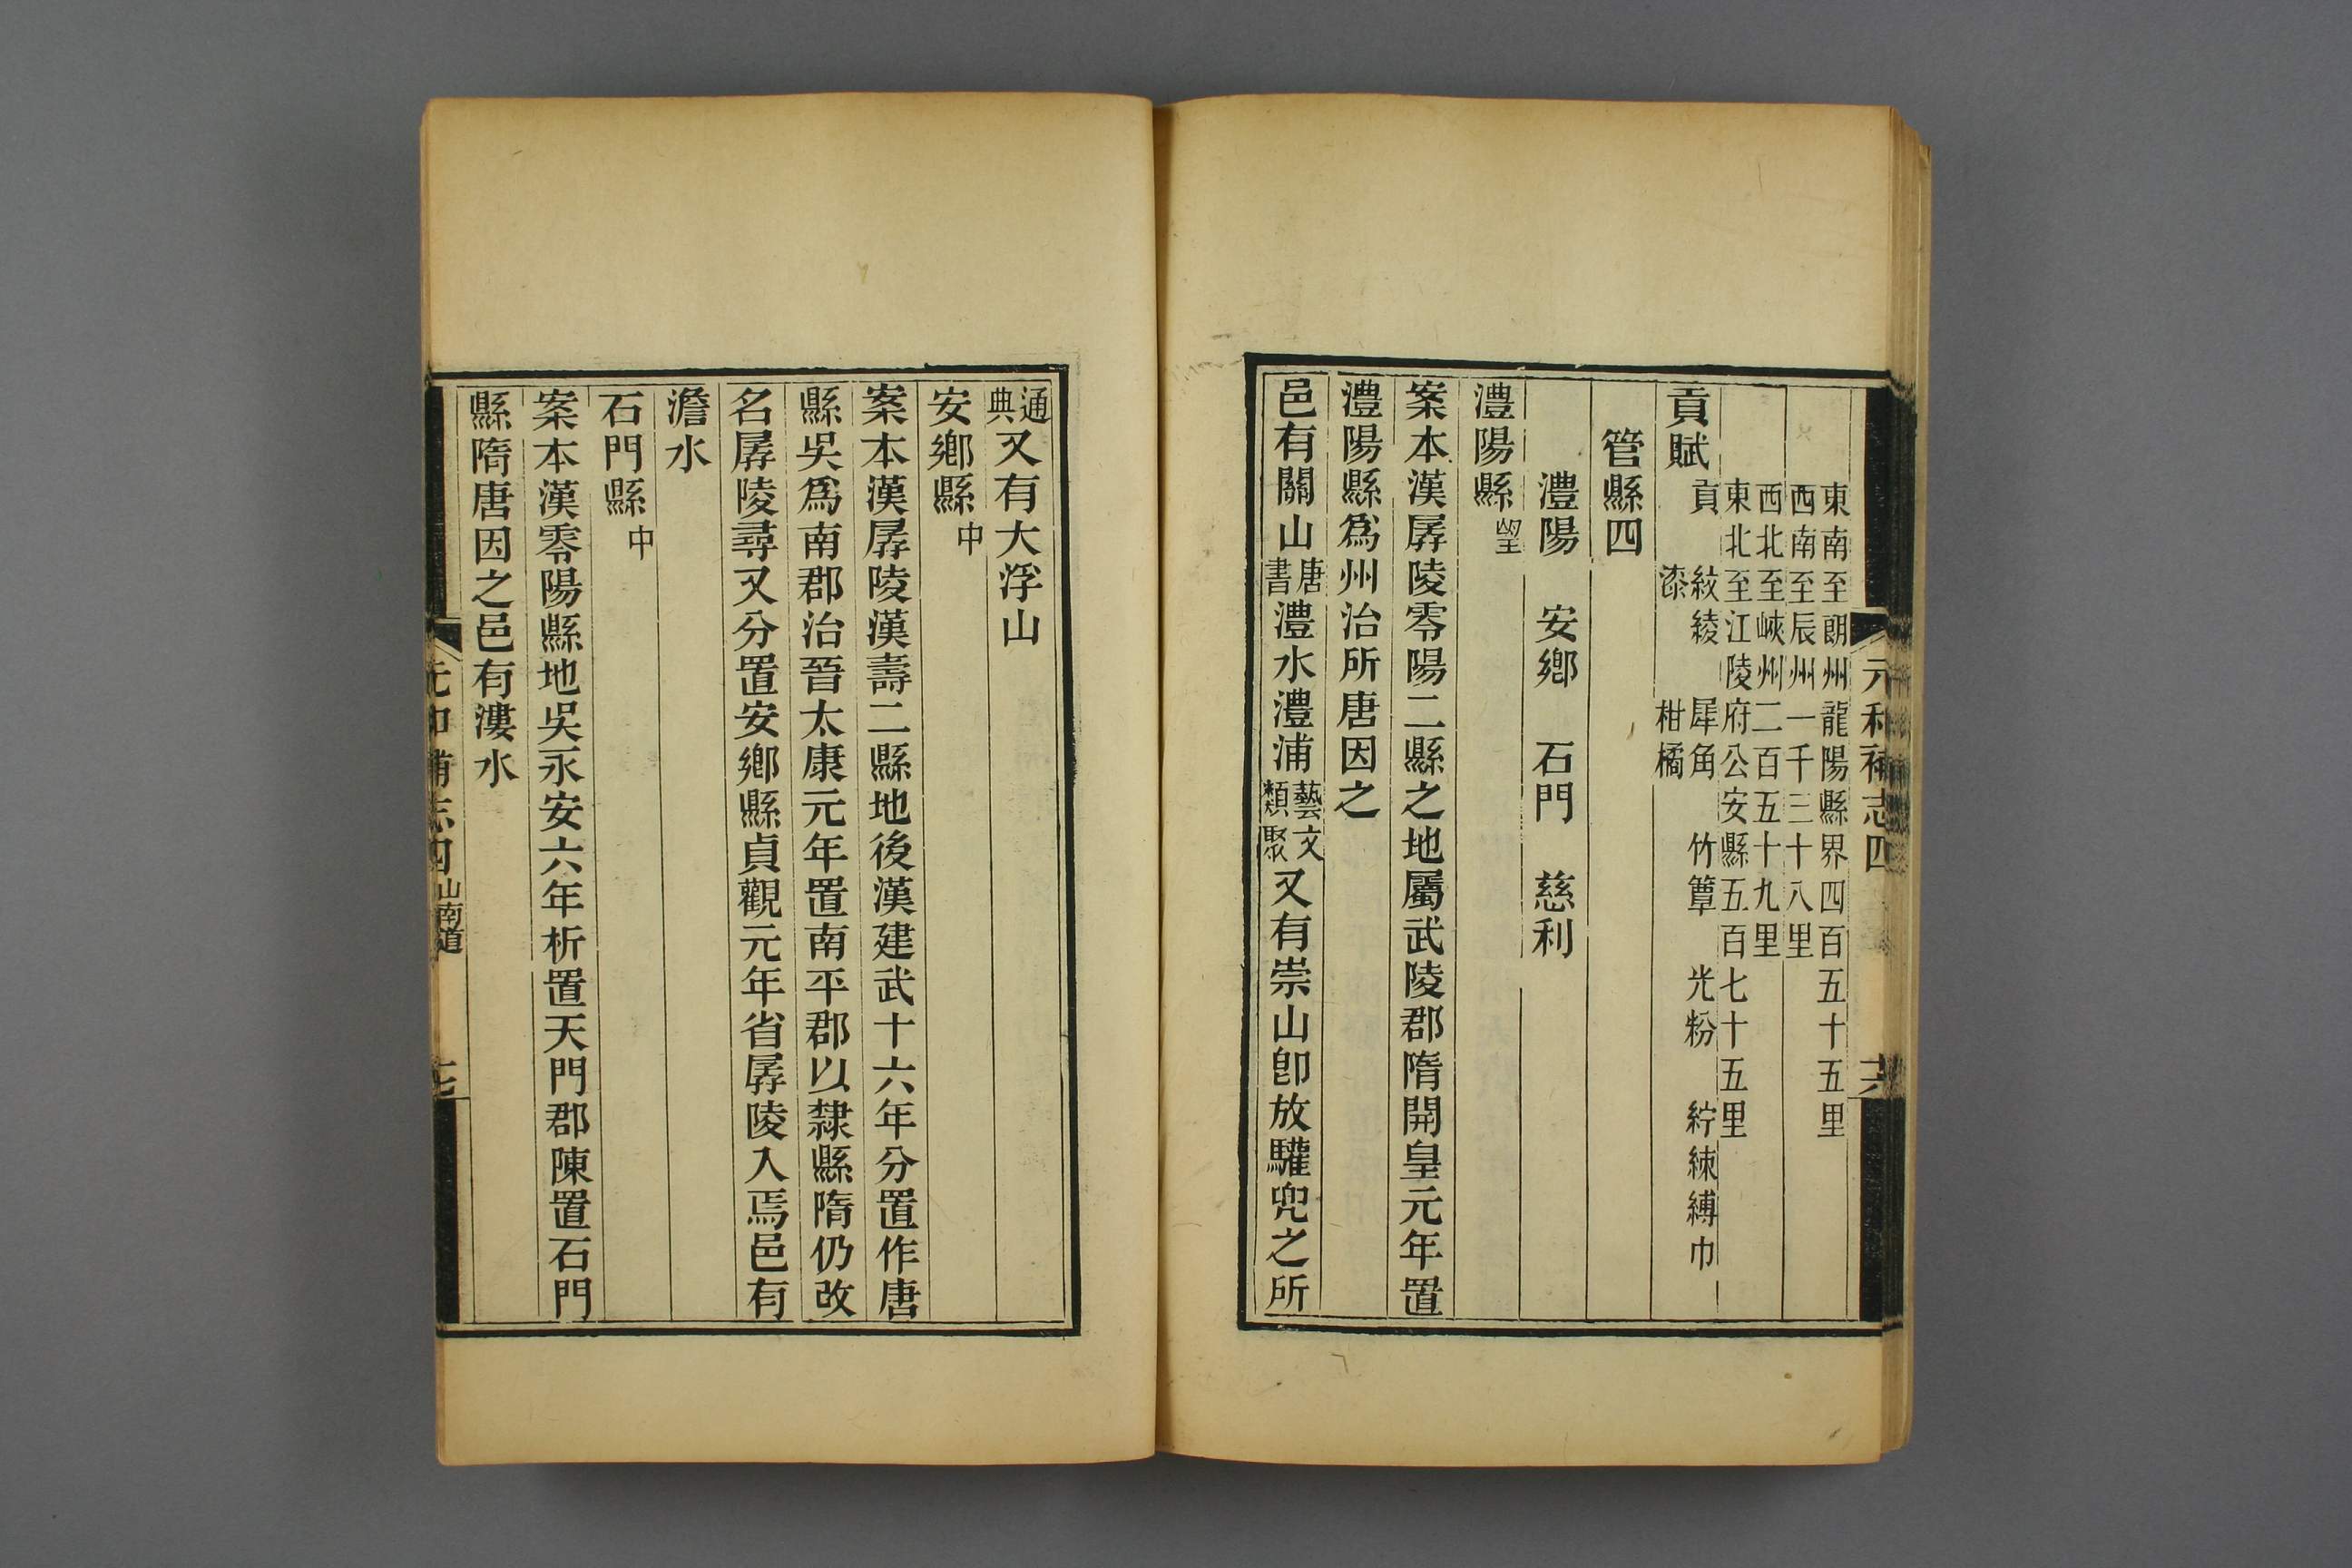 元和補志四　十六
東南至朗州龍陽縣界四百五十五里
西南至辰州一千三十八里
西北至峽州二百五十九里
東北至江陵府公安縣五百七十五里
貢賦　貢　紋綾　犀角　竹簟　光粉　紵練縛巾
漆　柑橘
管縣四
澧陽　安鄉　石門　慈利
澧陽縣望
案本漢孱陵零陽二縣之地屬武陵郡隋開皇元年置
澧陽縣爲州治所唐因之
邑有關山唐書澧水澧浦藝文類聚又有崇山卽放驩兜之所
通典又有大浮山
安鄉縣中
案本漢孱陵漢壽二縣地後漢建武十六年分置作唐
縣吳爲南郡治晉太康元年置南平郡以隸縣隋仍改
名孱陵尋又分置安鄉縣貞觀元年省孱陵入焉邑有
澹水
石門縣中
案本漢零陽縣地吳永安六年析置天門郡陳置石門
縣隋唐因之邑有漊水
元和補志四山南道　十七